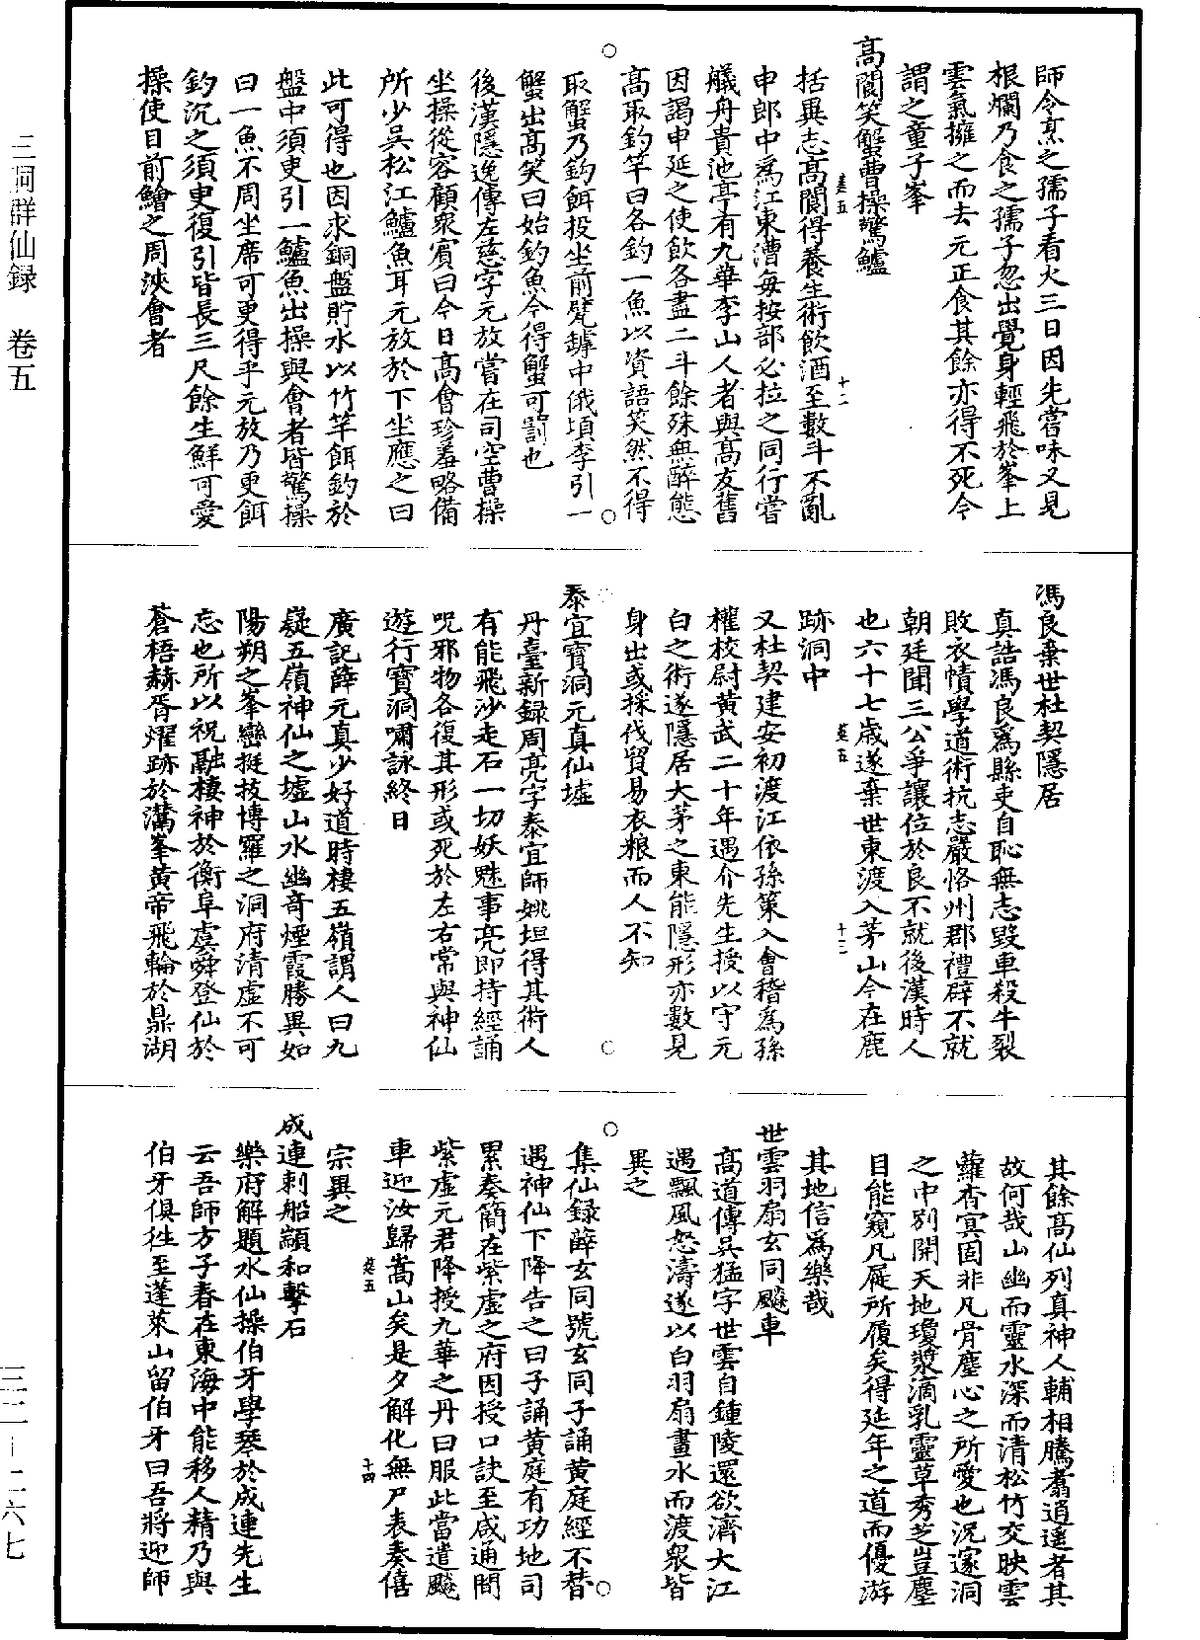 師令烹之孺子看火三日因先嘗味又見
根爛乃食之孺子忽出覺身輕飛於峯上
雲氣擁之而去元正食其餘亦得不死今
謂之童子峯
高閬笑蟹曹操驚鱸
括異志高閬得養生術飲酒至數斗不亂
申郎中爲江東漕每按部必拉之同行嘗
艤舟貴池亭有九華李山人者與高友舊
因謁申延之使飲各盡二斗餘殊無醉態
高取釣竿曰各釣一魚以資語笑然不得
取蟹乃鈎餌投坐前甓罅中俄頃李引一
蟹出高笑曰始釣魚今得蟹可罰也
後漢隱逸傳左慈字元放嘗在司空曹操
坐操從容顧衆賓曰今日高會珍羞略備
所少吳松江鱸魚耳元放於下坐應之曰
此可得也因求銅盤貯水以竹竿餌釣於
盤中須吏引一鱸魚出操與會者皆驚操
曰一魚不周坐席可更得乎元放乃更餌
釣沉之須吏復引皆長三尺餘生鮮可愛
操使目前鱠之周浹會者
馮良棄世杜契隱居
真誥馮良爲縣吏自恥無志毀車殺牛裂
敗衣幘學道術抗志嚴恪州郡禮辟不就
朝廷聞三公爭讓位於良不就後漢時人
也六十七歲遂棄世東渡入茅山今在鹿
跡洞中
又杜契建安初渡江依孫策入會稽爲孫
權校尉黃武二十年遇介先生授以守元
白之術遂隱居大茅之東能隱形亦數見
身出或採伐貿易衣粮而人不知
泰宜寶洞元真仙墟
丹臺新録周亮字泰宜師姚坦得其術人
有能飛沙走石一切妖魅事亮即持經誦
呪邪物各復其形或死於左右常與神仙
遊行寶洞嘯詠終日
廣記薛元真少好道時棲五嶺謂人曰九
疑五嶺神仙之墟山水幽奇煙霞勝異如
陽朔之峯巒挺拔博羅之洞府清虛不可
忘也所以祝融棲神於衡阜虞舜登仙於
蒼梧赫胥燿跡於潛峯黃帝飛輪於鼎湖
其餘高仙列真神人輔相騰翥逍遙者其
故何哉山幽而靈水深而清松竹交映雲
蘿杳冥固非凡骨塵心之所愛也況邃洞
之中別開天地瓊漿滴乳靈草秀芝豈塵
目能窺凡屣所履矣得延年之道而優游
其地信爲樂哉
世雲羽扇玄同飈車
高道傳吳猛字世雲自鍾陵還欲濟大江
遇飄風怒濤遂以白羽扇畫水而渡衆皆
異之
集仙録薛玄同號玄同子誦黃庭經不替
遇神仙下降告之曰子誦黃庭有功地司
累奏簡在紫虛之府因授口訣至咸通間
紫虛元君降授九華之丹曰服此當遣飈
車迎汝歸嵩山矣是夕解化無尸表奏僖
宗異之
成連刺船顓和擊石
樂府解題水仙操伯牙學琴於成連先生
云吾師方子春在東海中能移人精乃與
伯牙俱徃至蓬萊山留伯牙曰吾將迎師
卷五
十二
卷五
十三
卷五
十四
三洞群仙録 卷五
三二－二六七